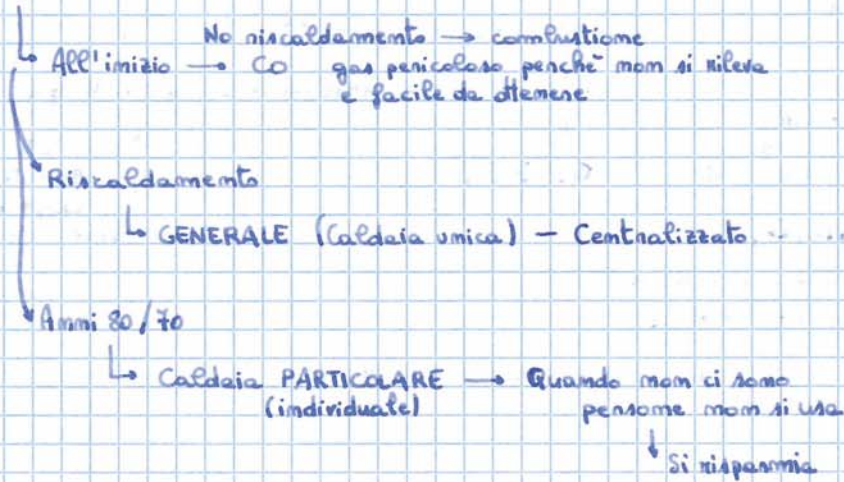 No riscaldamento → combustione
All'inizio → CO gas pericoloso perchè non si rileva
e facile da ottenere
Riscaldamento
↳ GENERALE (Caldaia unica) - Centralizzato
Anni 80/70
↳ Caldaia PARTICOLARE → Quando non ci sono
(individuale) persone non si usa
↓ Si risparmia